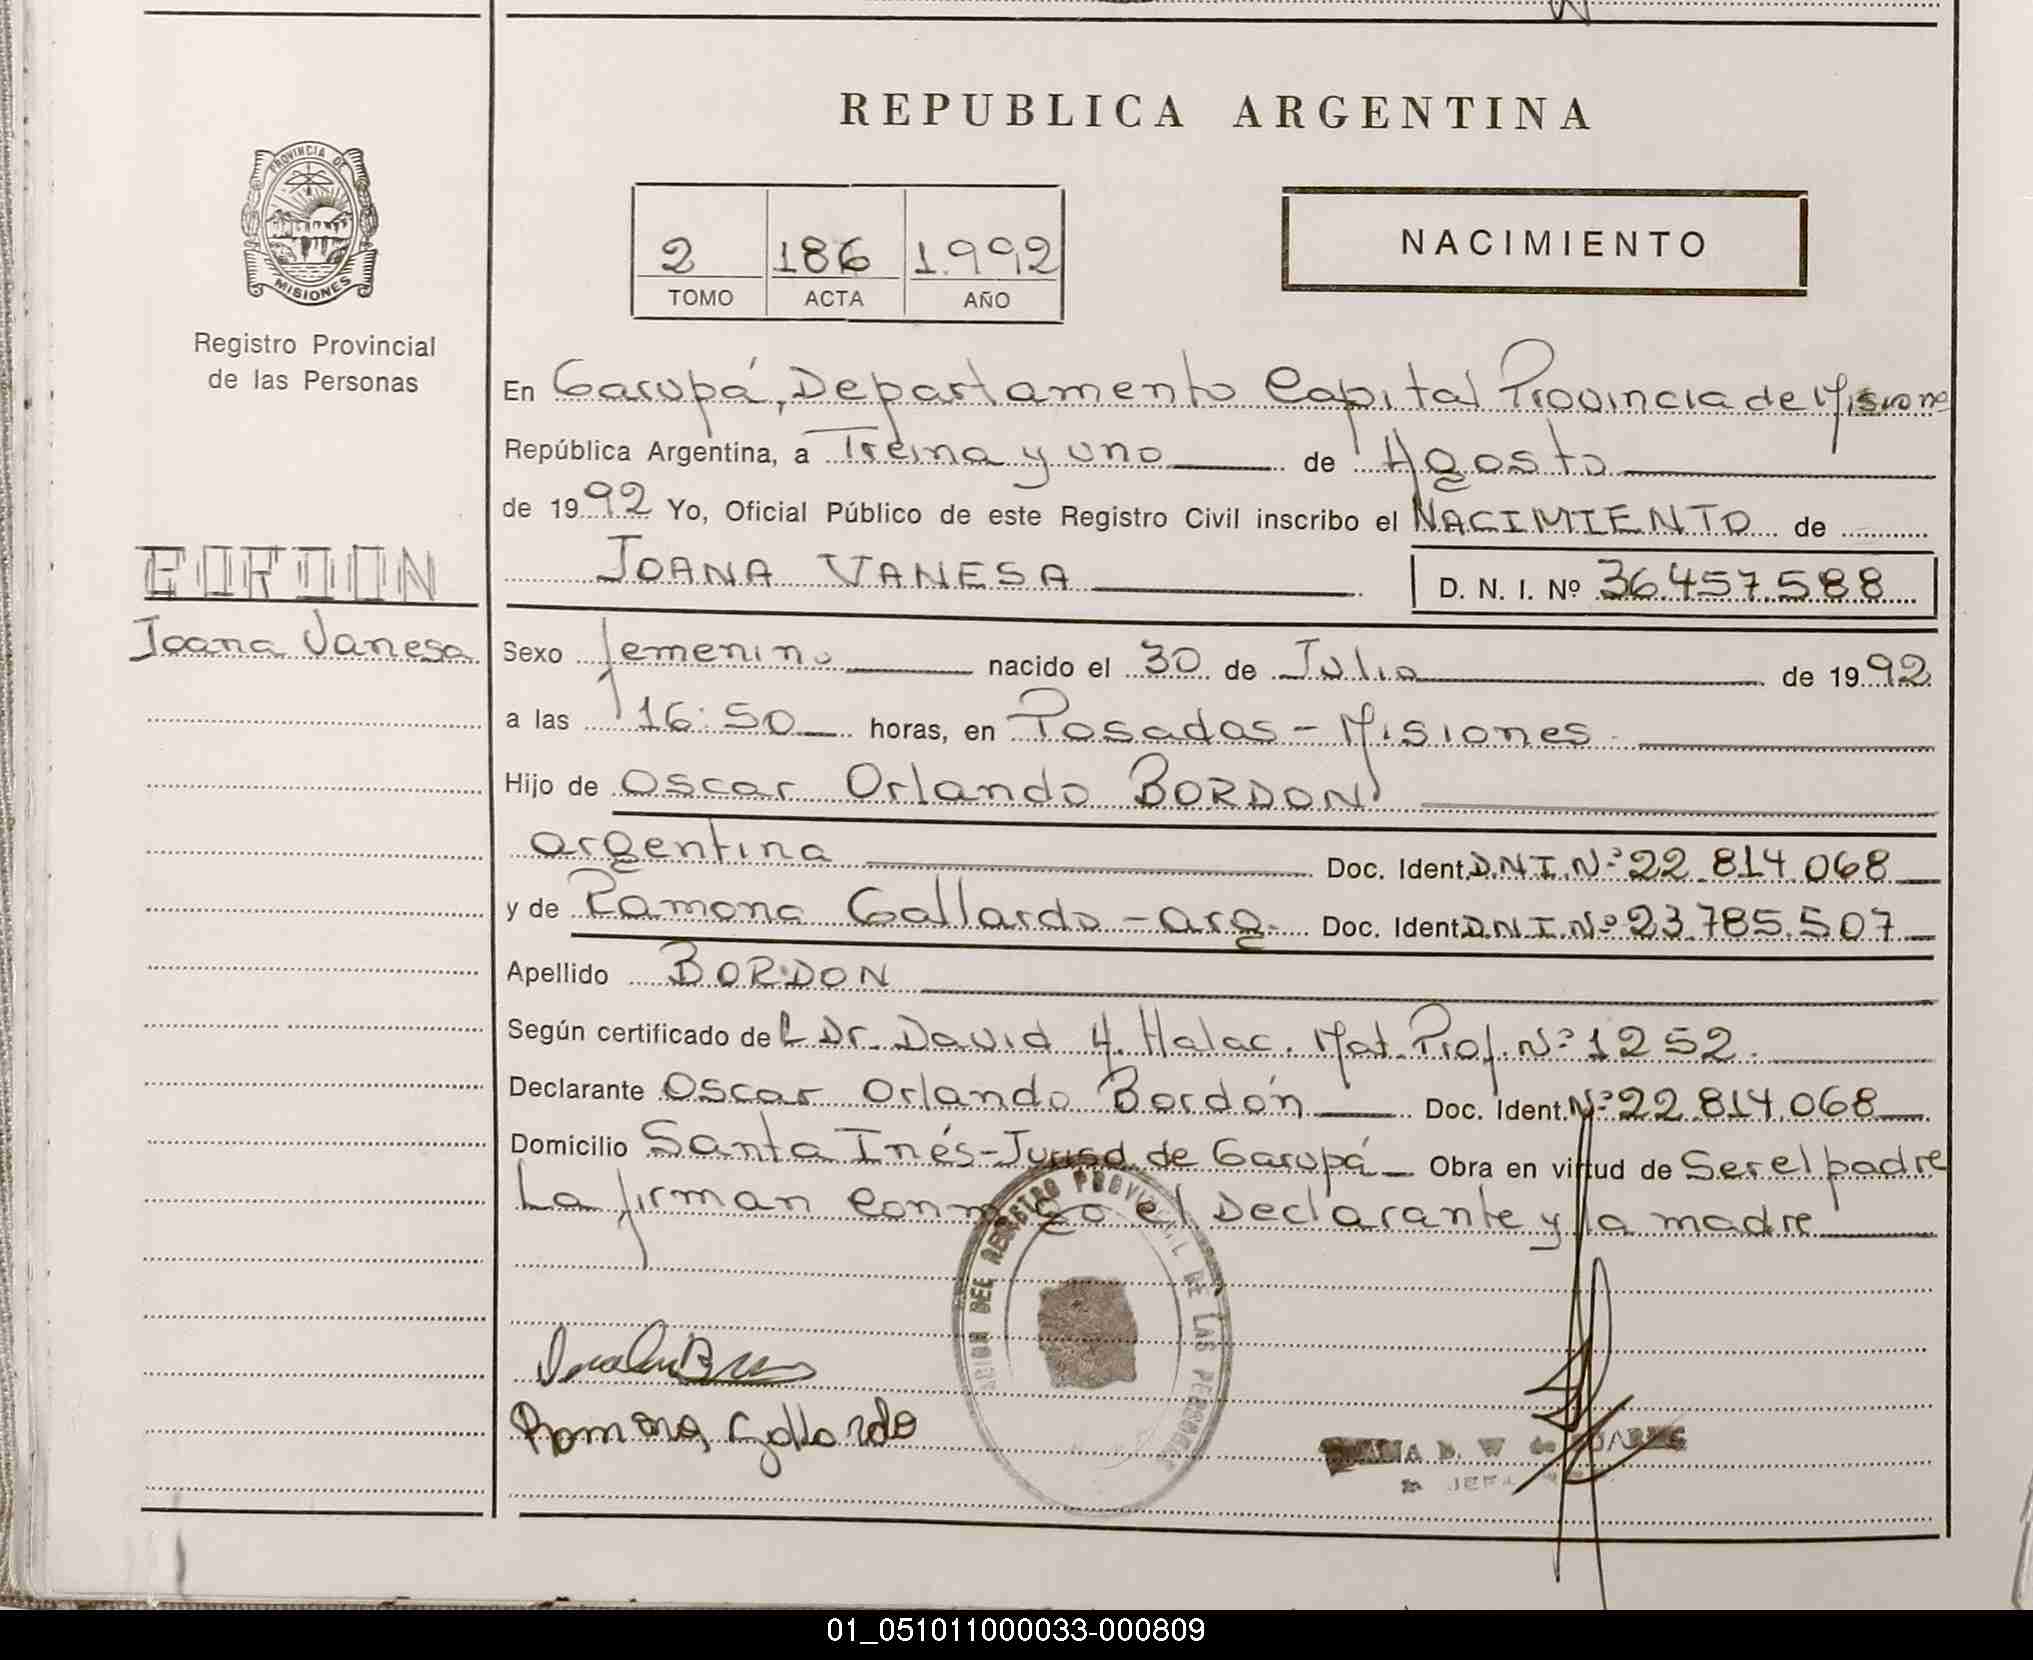 REPUBLICA ARGENTINA
PROVINCIA DE
MISIONES
Registro Provincial
de las Personas
2 186 1.992
TOMO ACTA AÑO
NACIMIENTO
En Garupá, Departamento Capital Provincia de Misiones
República Argentina, a Treina y uno de Agosto
de 1992 Yo, Oficial Público de este Registro Civil inscribo el NACIMIENTO de
BORDON
Joana Vanesa
JOANA VANESA D. N. I. Nº 36.457.588
Sexo femenino nacido el 30 de Julio de 1992
a las 16:50 horas, en Posadas - Misiones
Hijo de Oscar Orlando BORDON
argentina Doc. Ident. D.N.I. Nº 22.814.068
y de Ramona Gallardo - arg. Doc. Ident. D.N.I. Nº 23.785.507
Apellido BORDON
Según certificado del Dr. David H. Halac. Mat. Prof. Nº 1252.
Declarante Oscar Orlando Bordón Doc. Ident. Nº 22.814.068
Domicilio Santa Inés - Jurisd. de Garupá Obra en virtud de Ser el padre
La firman conmigo el Declarante y la madre
DEL REGISTRO PROVINCIAL DE LAS PERSONAS
Ramona Gallardo
D. W. de SUAREZ
JEFA
01_051011000033-000809